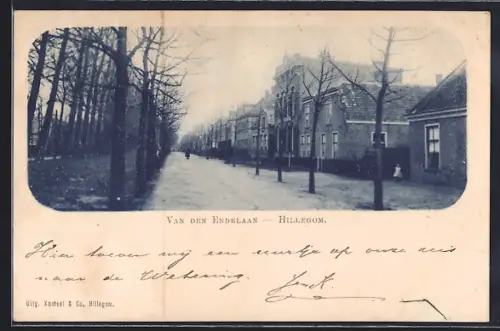 VAN DEN ENDELAAN — HILLEGOM.
Hier toeven wij een uurtje op onze reis
naar de Wetering. Jack.
Uitg. Kameel & Co., Hillegom.